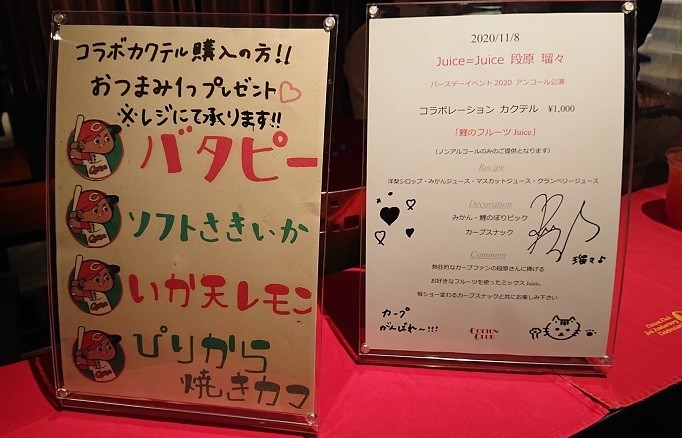 コラボカクテル購入の方!!
おつまみ1つプレゼント♡
※レジにて承ります!!
バタピー
ソフトさきいか
いか天レモン
ぴりから
焼きカマ
2020/11/8
Juice=Juice 段原 瑠々
バースデーイベント2020 アンコール公演
コラボレーション カクテル ¥1,000
「鯉のフルーツJuice」
(ノンアルコールのみのご提供となります)
Recipe
洋梨シロップ・みかんジュース・マスカットジュース・クランベリージュース
Decoration
みかん・鯉のぼりピック
カープスナック
瑠々♪
Comment
熱狂的なカープファンの段原さんに捧げる
お好きなフルーツを使ったミックスJuice。
毎ショー変わるカープスナックと共にお楽しみ下さい
カープ
がんばれ〜!!!
COTTON
CLUB
Cotton Club
Anniversary